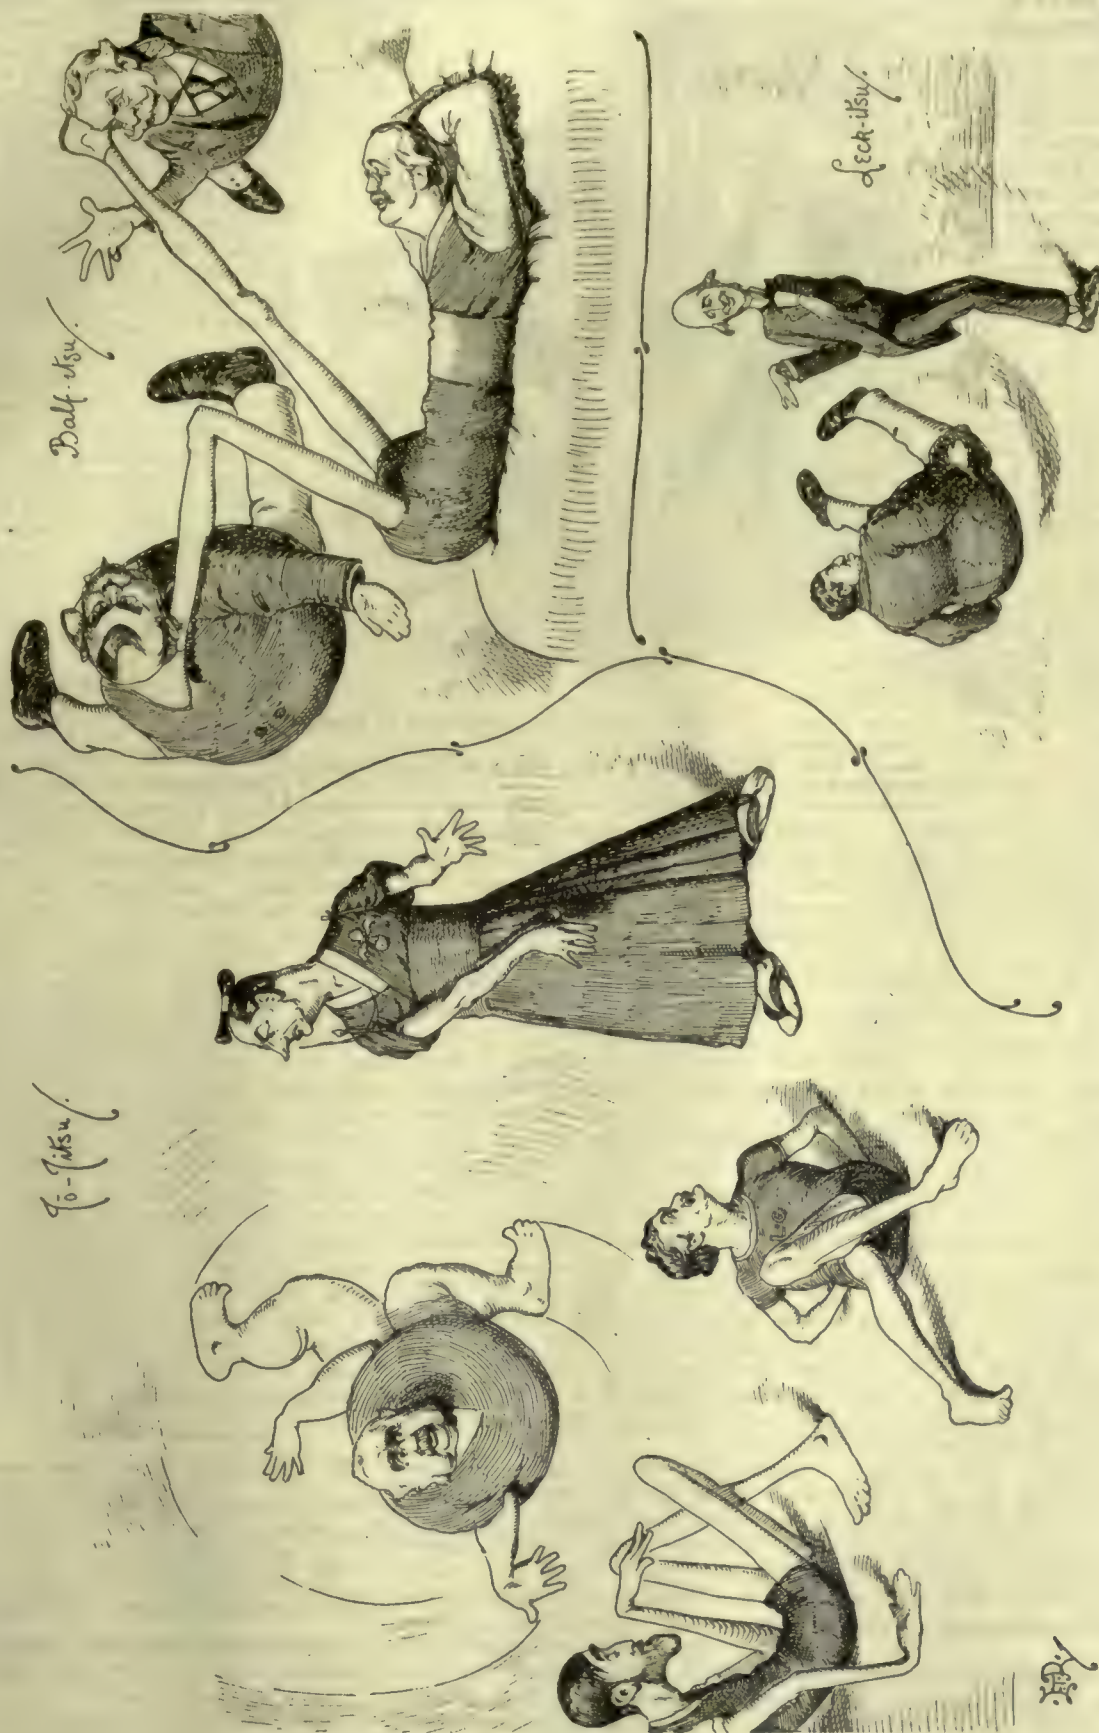 Jō-Jitsu.
Balf-itsu.
Leck-itsu.
L.G